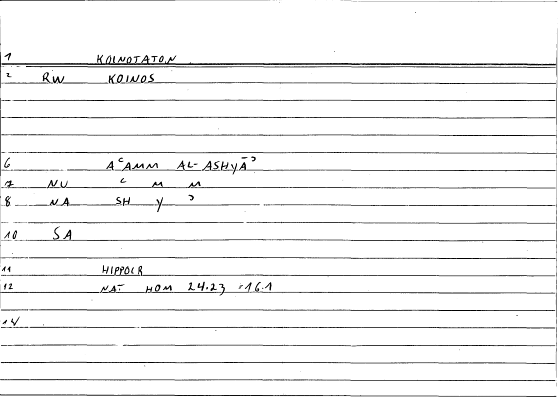 1 KOINOTATON
2 RW KOINOS
6 AʿAMM AL-ASHYĀʾ
7 NU ʿ M M
8 NA SH Y ʾ
10 SA
11 HIPPOCR
12 NAT HOM 24.23 =16.1
14